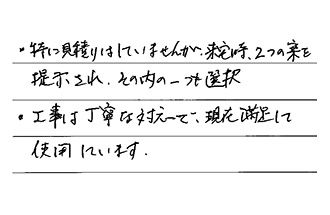 ・特に見積りはしていませんが、来宅時、2つの案を
提示され、その内の一つを選択
・工事は丁寧な対応で、現在満足して
使用しています.